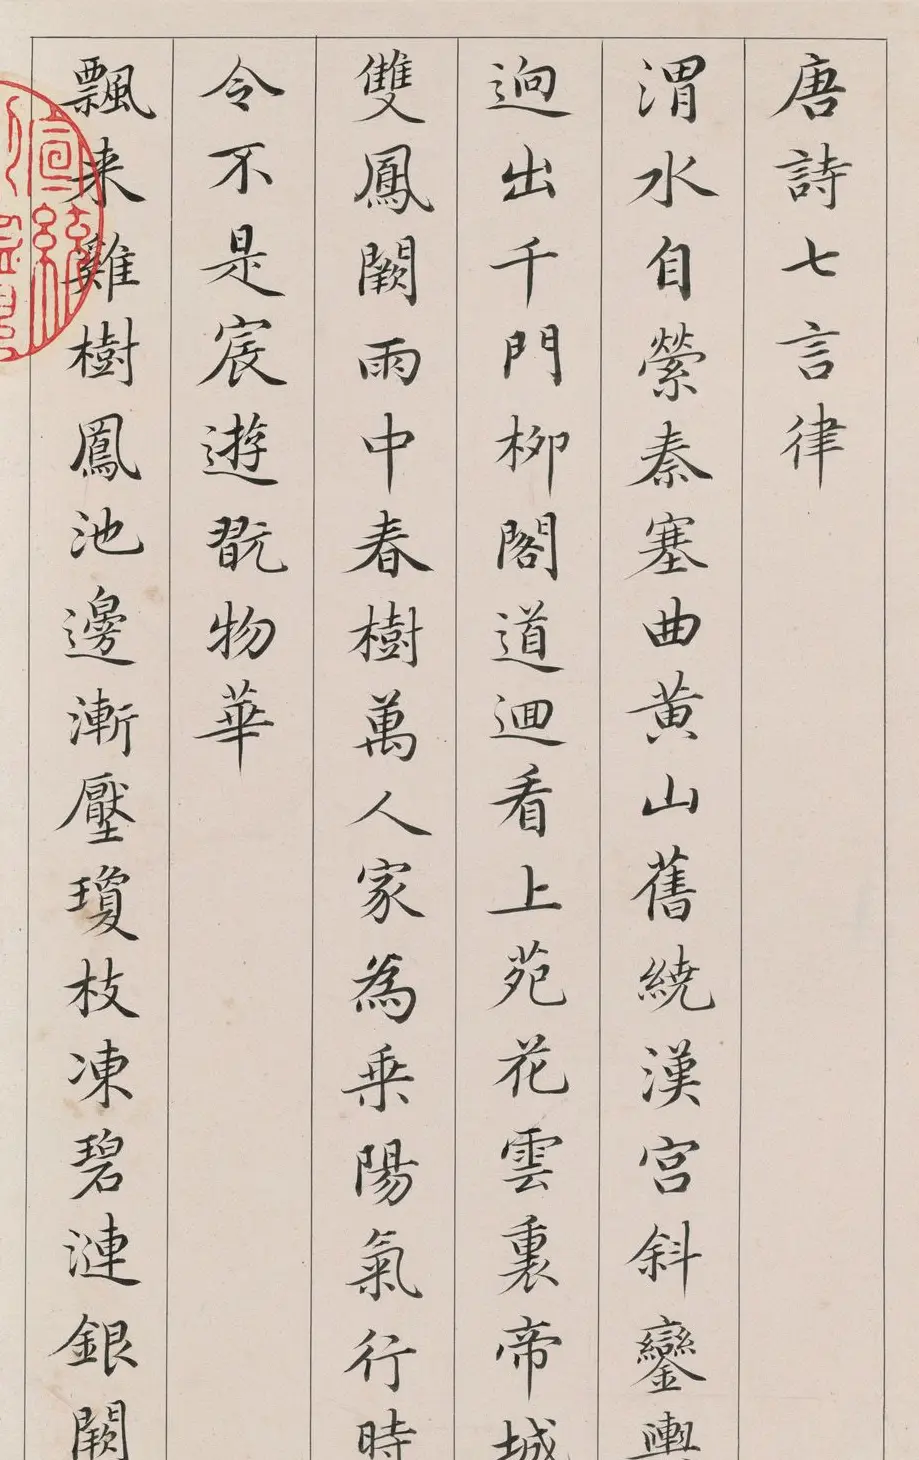 唐詩七言律
渭水自縈秦塞曲黄山舊繞漢宮斜鑾輿
逈出千門柳閣道迴看上苑花雲裏帝城
雙鳳闕雨中春樹萬人家為乗陽氣行時
令不是宸遊翫物華
飄来雞樹鳳池邊漸壓瓊枝凍碧漣銀闕
宣統